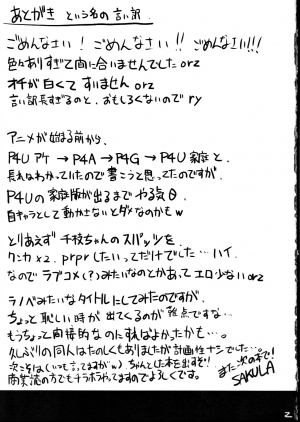 あとがき という名の言い訳
ごめんなさい! ごめんなさい!! ごめんなさい!!!
色々ありすぎて間に合いませんでしたorz
オチが白くて すいませんorz
言い訳長すぎるのと、おもしろくないので ry
アニメが始まる前から、
P4U アケ → P4A → P4G → P4U 家庭と、
長れなわかっていたので書こうと思ってたのですが、
P4Uの家庭版が出るまで やる気θ
自キャラとして動かさないとダメなのかもw
とりあえず 千枝ちゃんのスパッツを、
クンカ x2、prprしたいってだけでした…ハイ、
なので ラブコメ(?)みたいなのとかあって エロ少ないorz
ラノベみたいなタイトルにしてみたのですが、
ちょっと恥しい時が 出てくるのが難点ですな…
もうちょっと間接的なのにすればよかったかも…。
久しぶりの同人はたのしくもありましたが計画性ナシでした…。
次こそは(いつも言ってますがw)ちゃんとした本を出すぞ!
商業誌の方でもチラホラやってますのでよろしくです。
また次の本で!
SAKULA
2